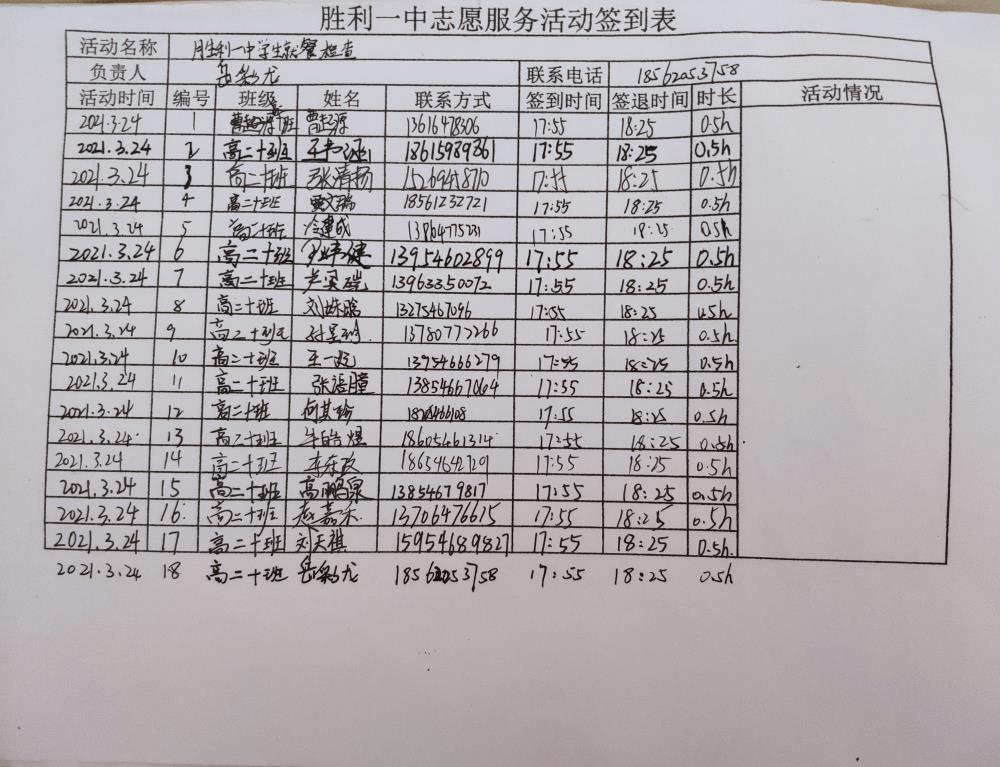 胜利一中志愿服务活动签到表
活动名称 胜利一中学生就餐检查
负责人 联系电话 18562053758
活动时间 编号 班级 姓名 联系方式 签到时间 签退时间 时长 活动情况
2021.3.24 1 13616478306 17:55 18:25 0.5h
2021.3.24 2 高二十班 18615989861 17:55 18:25 0.5h
2021.3.24 3 高二十班 张清扬 17:55 18:25 0.5h
2021.3.24 4 高二十班 贾文瑞 18561232721 17:55 18:25 0.5h
2021.3.24 5 高二十班 冷建成 17:55 18:25 0.5h
2021.3.24 6 高二十班 13954602899 17:55 18:25 0.5h
2021.3.24 7 高二十班 13963350072 17:55 18:25 0.5h
2021.3.24 8 高二十班 刘姝晗 13275467096 17:55 18:25 0.5h
2021.3.24 9 高二十班 13780777266 17:55 18:25 0.5h
2021.3.24 10 高二十班 13954666279 17:55 18:25 0.5h
2021.3.24 11 高二十班 17:55 18:25 0.5h
2021.3.24 12 高二十班 17:55 18:25 0.5h
2021.3.24 13 高二十班 牛皓煜 18605461314 17:55 18:25 0.5h
2021.3.24 14 高二十班 18654647291 17:55 18:25 0.5h
2021.3.24 15 高二十班 高鹏泉 13854679817 17:55 18:25 0.5h
2021.3.24 16 高二十班 13706476615 17:55 18:25 0.5h
2021.3.24 17 高二十班 刘天祺 15954689827 17:55 18:25 0.5h
2021.3.24 18 高二十班 18562053758 17:55 18:25 0.5h